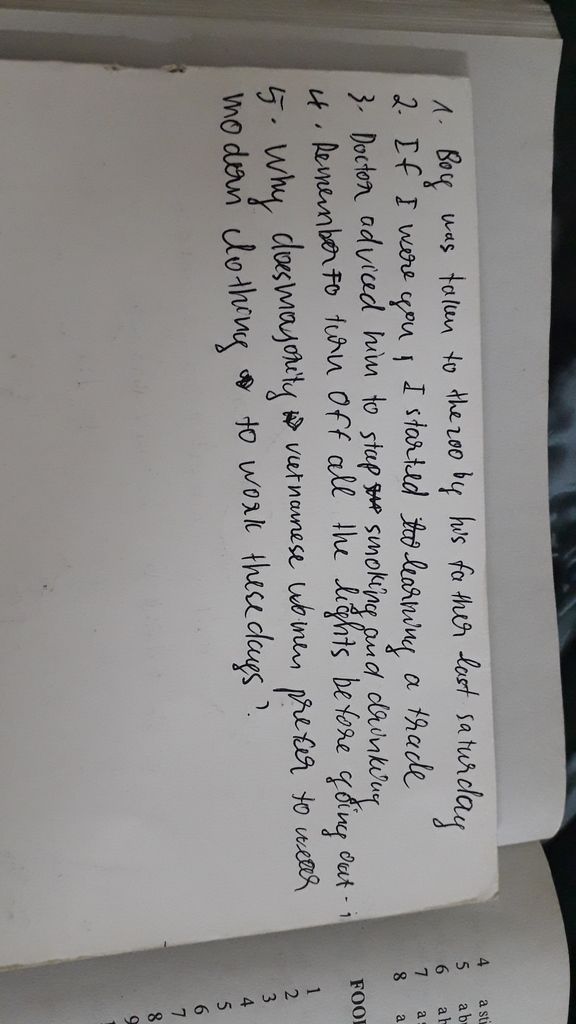 1. Boy was taken to the zoo by his father last saturday
2. If I were you, I started learning a trade
3. Doctor adviced him to stop smoking and drinking
4. Remember to turn off all the lights before going out
5. Why does majority vietnamese women prefer to wear
modern clothing to work these days?
4 a sti
5 ab
6 ah
7 a
8 a
FOO
1
2
3
4
5
6
7
8
9